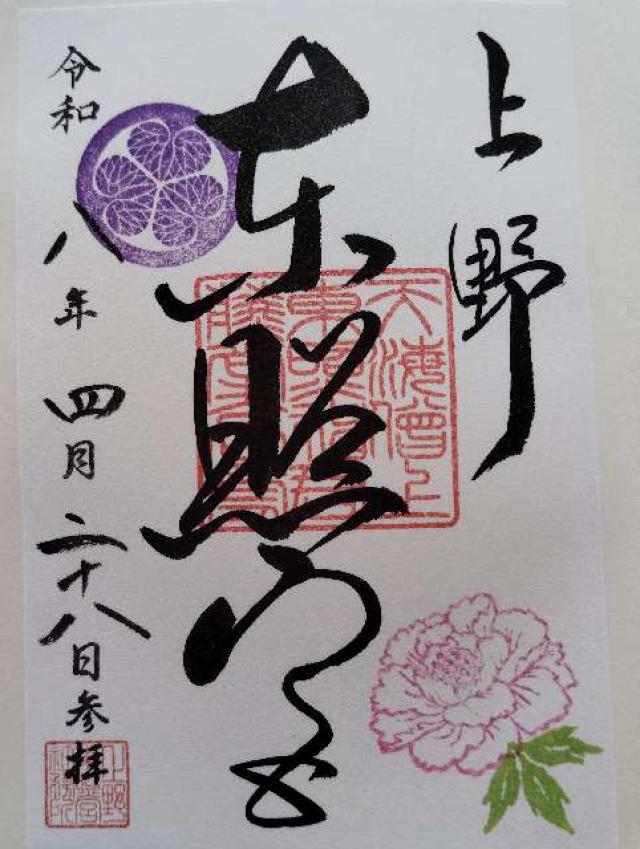 上野
東照宮
令和八年四月二十八日参拝